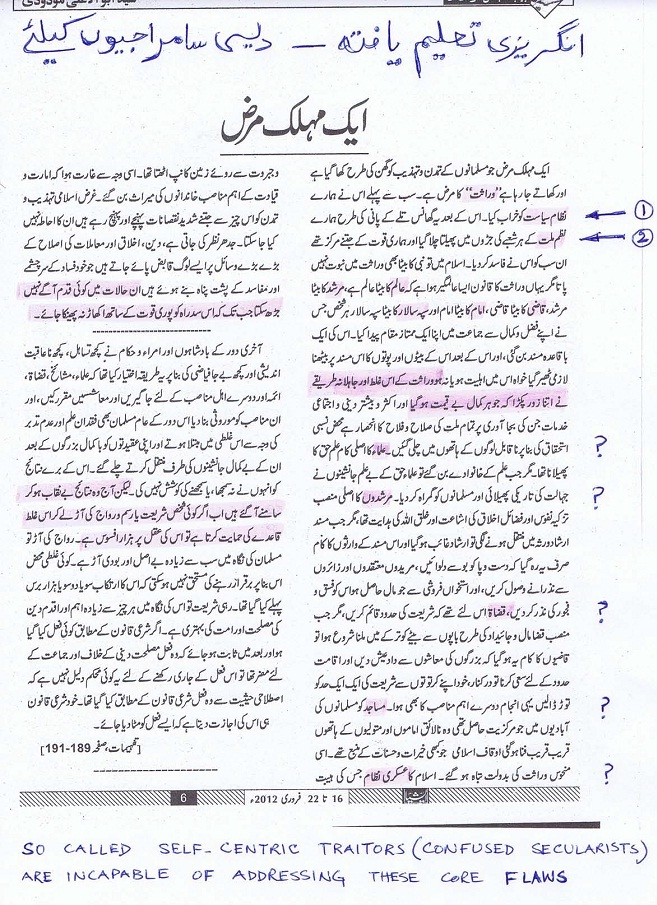 سید ابوالاعلیٰ مودودی
انگریزی تعلیم یافتہ — دیسی سامراجیوں کیلئے
ایک مہلک مرض
ایک مہلک مرض جو مسلمانوں کے تمدن و تہذیب کو گھن کی طرح کھا گیا ہے
اور کھائے جا رہا ہے ”وراثت“ کا مرض ہے۔ سب سے پہلے اس نے ہمارے
نظام سیاست کو خراب کیا۔ اس کے بعد یہ گھانس تلے کے پانی کی طرح ہمارے
①
نظم ملت کے ہر شعبے کی جڑوں میں پھیلتا چلا گیا اور ہماری قوت کے جتنے مرکز تھے
②
ان سب کو اس نے فاسد کر دیا۔ اسلام میں تو نبی کا بیٹا بھی وراثت میں نبوت نہیں
پاتا مگر یہاں وراثت کا قانون ایسا عالمگیر ہوا ہے کہ عالم کا بیٹا عالم ہے، مرشد کا بیٹا
مرشد، قاضی کا بیٹا قاضی، امام کا بیٹا امام اور سپہ سالار کا بیٹا سپہ سالار ہر شخص جس
نے اپنے فضل و کمال سے جماعت میں اپنا ایک ممتاز مقام پیدا کیا۔ اس کی ایک
باقاعدہ مسند بن گئی، اور اس کے بعد اس کے بیٹوں اور پوتوں کا اس مسند پر بیٹھنا
لازمی ٹھیر گیا خواہ اس میں اہلیت ہو یا نہ ہو وراثت کے اس غلط اور جاہلانہ طریقے
نے اتنا زور پکڑا کہ جوہر کمال بے قیمت ہو گیا اور اکثر و بیشتر دینی و اجتماعی
خدمات جن کی بجا آوری پر تمام ملت کی صلاح و فلاح کا انحصار ہے محض نسبی
استحقاق کی بنا پر نا قابل لوگوں کے ہاتھوں میں چلی گئیں۔ علماء کا اصلی کام علم حق کا
?
پھیلانا تھا۔ مگر جب علم کے خانوادے بن گئے تو علماء حق کے بے علم جانشینوں نے
جہالت کی تاریکی پھیلائی اور مسلمانوں کو گمراہ کر دیا۔ مرشدوں کا اصلی منصب
?
تزکیہ نفوس اور فضائل اخلاق کی اشاعت اور خلق اللہ کی ہدایت تھا، مگر جب مسند
ارشاد ورثہ میں منتقل ہونے لگی تو ارشاد غائب ہو گیا اور اس مسند کے وارثوں کا کام
صرف یہ رہ گیا کہ دست و پا کو بوسے دلوائیں، مریدوں معتقدوں اور زائروں
سے نذرانے وصول کریں، اور استخواں فروشی سے جو مال حاصل ہو اس کو فسق و
فجور کی نذر کر دیں، قضاۃ اس لئے تھے کہ شریعت کی حدود قائم کریں، مگر جب
?
منصب قضا مال و جائیداد کی طرح باپوں سے بیٹے کو ترکے میں ملنا شروع ہوا تو
قاضیوں کا کام یہ ہو گیا کہ بزرگوں کی معاشوں سے داد عیش دیں اور اقامت
حدود کے لئے سعی کرنا تو درکنار، خود اپنے کرتوتوں سے شریعت کی ایک ایک حد کو
توڑ ڈالیں یہی انجام دوسرے اہم مناصب کا بھی ہوا۔ مساجد کو مسلمانوں کی
?
آبادیوں میں جو مرکزیت حاصل تھی وہ نالائق اماموں اور متولیوں کے ہاتھوں
قریب قریب فنا ہو گئی اوقاف اسلامی جو کبھی خیرات و حسنات کے منبع تھے۔ اسی
منحوس وراثت کی بدولت تباہ ہو گئے۔ اسلام کا عسکری نظام جس کی ہیبت
?
و جبروت سے روئے زمین کانپ اٹھتا تھا۔ اسی وجہ سے غارت ہوا کہ امارت و
قیادت کے اہم مناصب خاندانوں کی میراث بن گئے۔ غرض اسلامی تہذیب و
تمدن کو اس چیز سے جتنے شدید نقصانات پہنچے اور پہنچ رہے ہیں ان کا احاطہ نہیں
کیا جا سکتا۔ جدھر نظر کی جاتی ہے، دین، اخلاق اور معاملات کی اصلاح کے
بڑے بڑے وسائل پر ایسے لوگ قابض پائے جاتے ہیں جو خود فساد کے سرچشمے
اور مفاسد کے پشت پناہ بنے ہوئے ہیں ان حالات میں کوئی قدم آگے نہیں
بڑھ سکتا جب تک کہ اس سد راہ کو پوری قوت کے ساتھ اکھاڑ نہ پھینکا جائے۔
آخری دور کے بادشاہوں اور امراء و حکام نے کچھ تساہل، کچھ ناعاقبت
اندیشی اور کچھ بے جا فیاضی کی بنا پر یہ طریقہ اختیار کیا تھا کہ علماء، مشائخ، قضاۃ،
ائمہ اور دوسرے اہل مناصب کے لئے جاگیریں اور معاشیں مقرر کیں، اور
ان مناصب کو موروثی بنا دیا اس دور کے عام مسلمان بھی فقدان علم اور عدم تدبر
کی وجہ سے اس غلطی میں مبتلا ہوتے اور اپنی عقیدتوں کو با کمال بزرگوں کے بعد
ان کے بے کمال جانشینوں کی طرف منتقل کرتے چلے گئے۔ اس کے برے نتائج
کو انہوں نے نہ سمجھا، یا سمجھنے کی کوشش نہیں کی۔ لیکن آج وہ نتائج بے نقاب ہو کر
سامنے آ گئے ہیں اب اگر کوئی شخص شریعت یا رسم و رواج کی آڑ لے کر اس غلط
قاعدے کی حمایت کرتا ہے تو اس کی عقل پر ہزار افسوس ہے۔ رواج کی آڑ تو
مسلمان کی نگاہ میں سب سے زیادہ بے اصل اور بودی آڑ ہے۔ کوئی غلطی محض
اس بنا پر برقرار رہنے کی مستحق نہیں ہو سکتی کہ اس کا ارتکاب سو یا دو سو یا ہزار برس
پہلے کیا گیا تھا۔ رہی شریعت تو اس کی نگاہ میں ہر چیز سے زیادہ اہم اور اقدم دین
کی مصلحت اور امت کی بہتری ہے۔ اگر شرعی قانون کے مطابق کوئی فعل کیا گیا
ہو اور بعد میں ثابت ہو جائے کہ وہ فعل مصلحت دینی کے خلاف اور جماعت کے
لئے مضر تھا تو اس فعل کے جاری رکھنے کے لئے یہ کوئی محکم دلیل نہیں ہے کہ
اصطلاحی حیثیت سے وہ فعل شرعی قانون کے مطابق کیا گیا تھا۔ خود شرعی قانون
ہی اس کی اجازت دیتا ہے کہ ایسے فعل کو مٹا دیا جائے۔
[تفہیمات، صفحہ 189-191]
16 تا 22 فروری 2012ء
6
SO CALLED SELF-CENTRIC TRAITORS (CONFUSED SECULARISTS)
ARE INCAPABLE OF ADDRESSING THESE CORE FLAWS